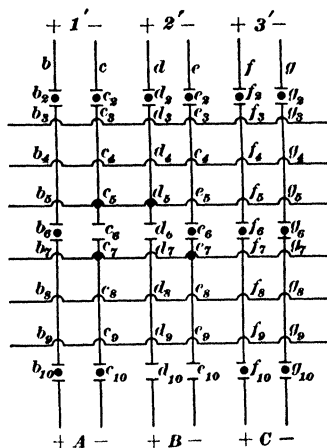 + 1' − + 2' − + 3' −
b c d e f g
b2 c2 d2 e2 f2 g2
b3 c3 d3 e3 f3 g3
b4 c4 d4 c4 f4 g4
b5 c5 d5 e5 f5 g5
b6 c6 d6 e6 f6 g6
b7 c7 d7 e7 f7 g7
b8 c8 d8 e8 f8 g8
b9 c9 d9 e9 f9 g9
b10 c10 d10 e10 f10 g10
+ A − + B − + C −